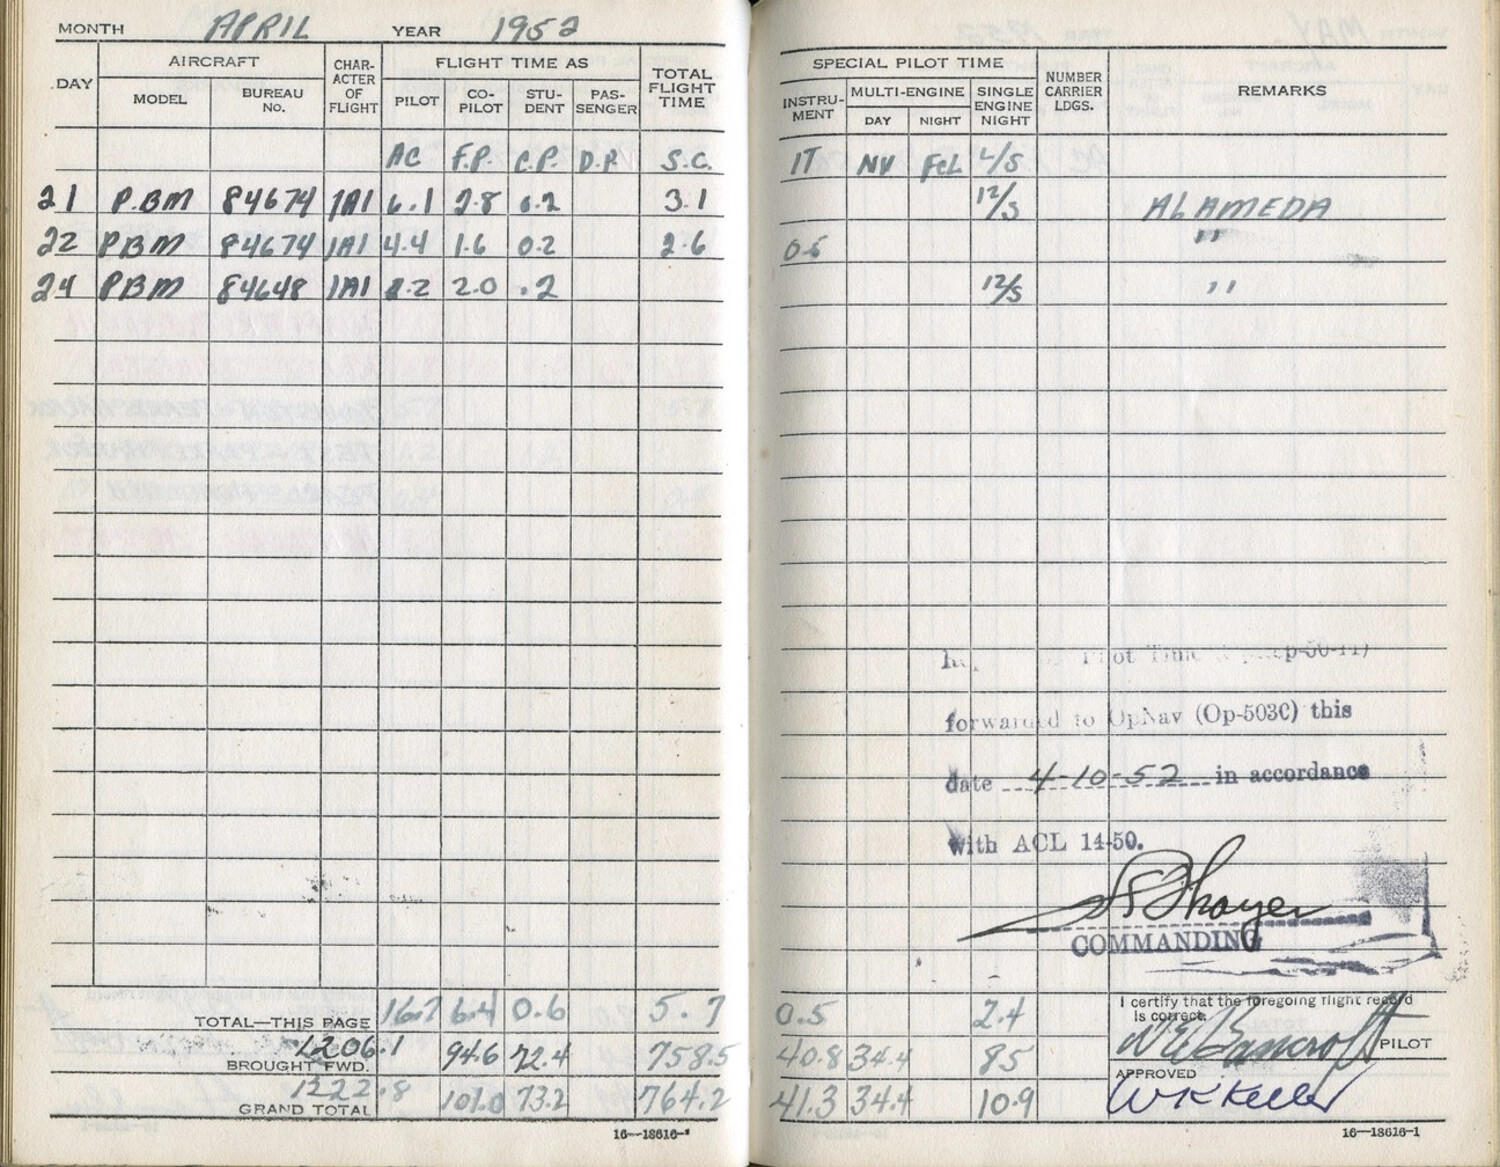 MONTH APRIL YEAR 1952
DAY AIRCRAFT CHAR- ACTER OF FLIGHT FLIGHT TIME AS TOTAL FLIGHT TIME
MODEL BUREAU No. PILOT CO- PILOT STU- DENT PAS- SENGER
AC F.P. C.P. D.P. S.C.
21 P.BM 84674 1A1 6.1 2.8 0.2 3.1
22 PBM 84674 1A1 4.4 1.6 0.2 2.6
24 PBM 84648 1A1 2.0 .2
TOTAL—THIS PAGE 16.7 6.4 0.6 5.7
BROUGHT FWD. 1206.1 94.6 72.4 758.5
GRAND TOTAL 1222.8 101.0 73.2 764.2
16—18616-1
SPECIAL PILOT TIME NUMBER CARRIER LDGS. REMARKS
INSTRU- MENT MULTI-ENGINE SINGLE ENGINE NIGHT
DAY NIGHT
IT NV FCL L/S
12/S ALAMEDA
0.5 "
12/S "
Pilot Time
forwarded to OpNav (Op-503C) this
date 4-10-52 in accordance
with ACL 14-50.
Thayer
COMMANDING
0.5 2.4 I certify that the foregoing flight record is correct.
40.8 34.4 85 Bancroft PILOT
APPROVED
41.3 34.4 10.9 WK Keller
16—18616-1